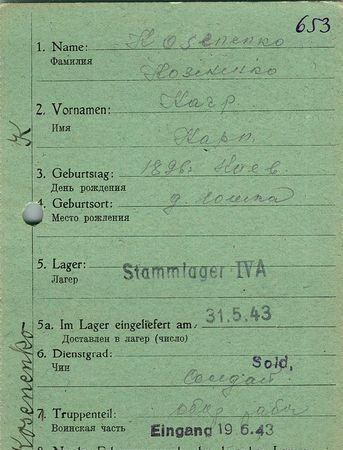 653
1. Name: Kosenenko
Фамилия
2. Vornamen:
Имя Карп
3. Geburtstag: 1896.
День рождения
4. Geburtsort: д.
Место рожления
5. Lager: Stammlager IVA
Лагер
5a. Im Lager eingeliefert am 31.5.43
Доставлен в лагер (число)
6. Dienstgrad: Sold.
Чин Солдат
7. Truppenteil:
Воинская часть Eingang 19.6.43
K
Kosenenko